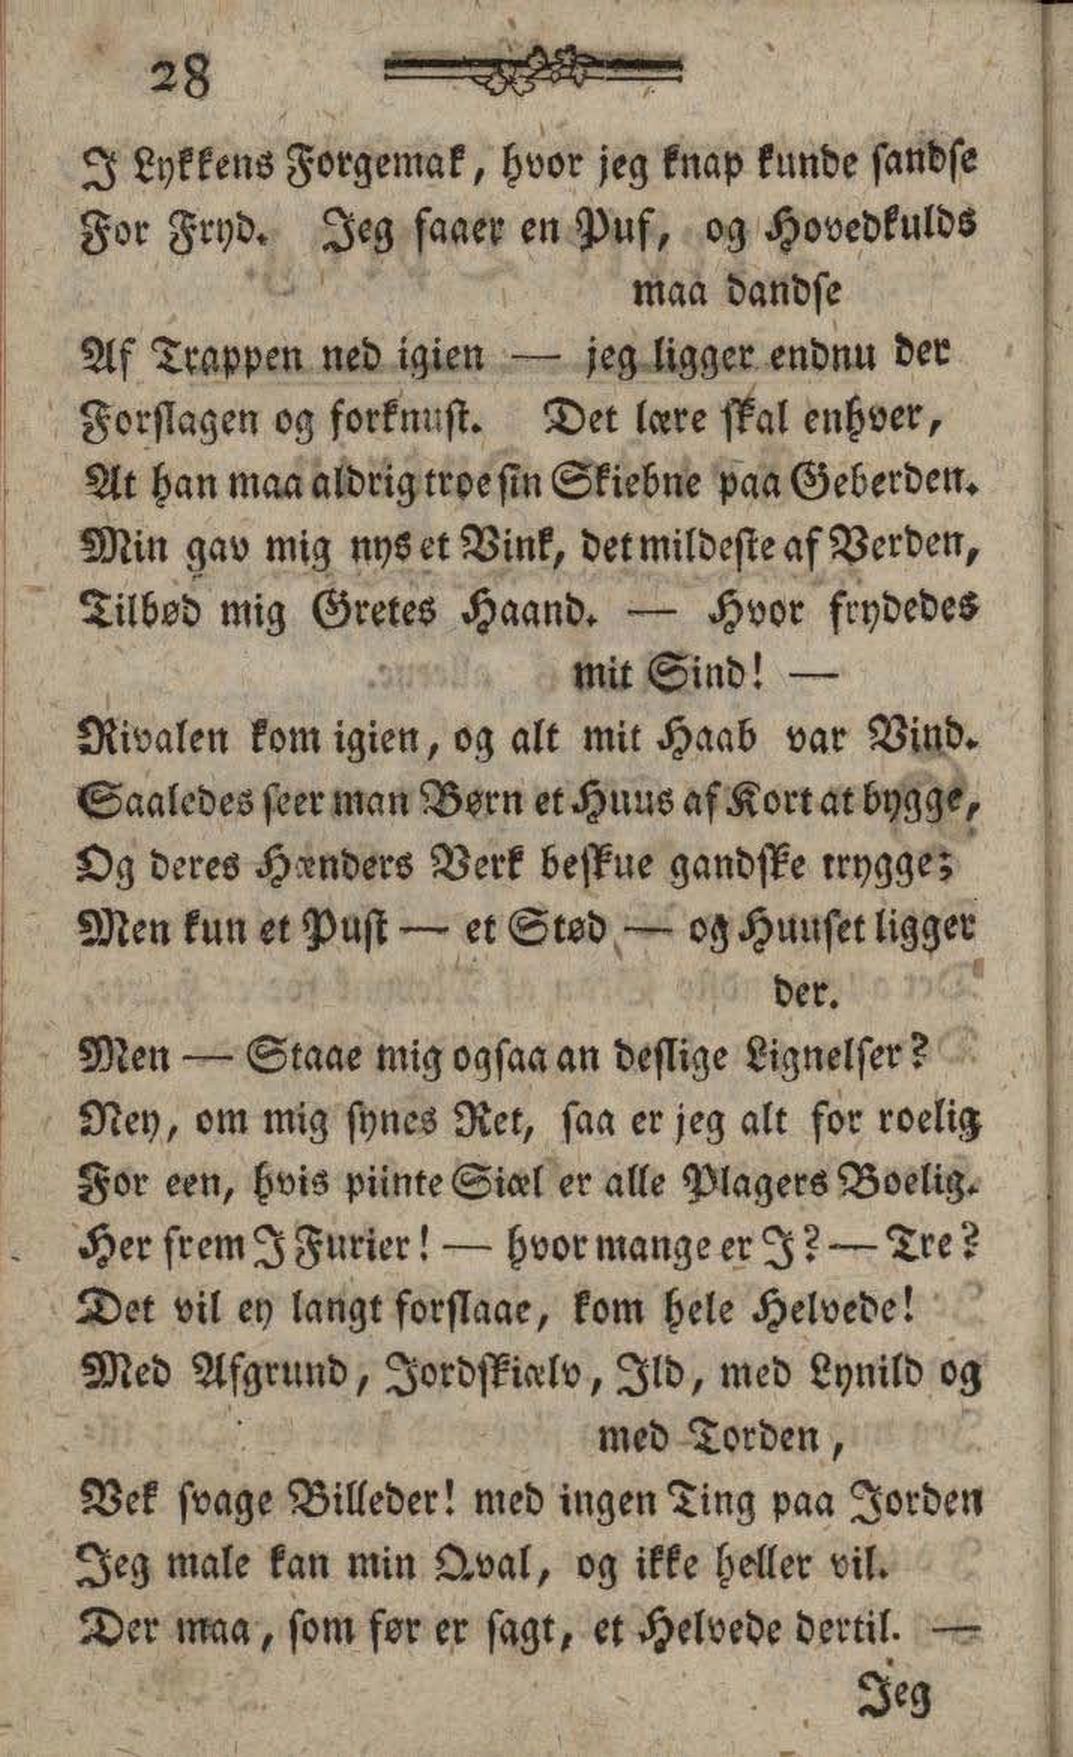 28
I Lykkens Forgemak, hvor jeg knap kunde sandse
For Fryd. Jeg faaer en Puf, og Hovedkulds
maa dandse
Af Trappen ned igien — jeg ligger endnu der
Forslagen og forknust. Det lære skal enhver,
At han maa aldrig troe sin Skiebne paa Geberden.
Min gav mig nys et Vink, det mildeste af Verden,
Tilbød mig Gretes Haand. — Hvor frydedes
mit Sind! —
Rivalen kom igien, og alt mit Haab var Vind.
Saaledes seer man Børn et Huus af Kort at bygge,
Og deres Hænders Verk beskue gandske trygge;
Men kun et Pust — et Stød — og Huuset ligger
der.
Men — Staae mig ogsaa an deslige Lignelser?
Ney, om mig synes Ret, saa er jeg alt for roelig
For een, hvis piinte Siæl er alle Plagers Boelig.
Her frem I Furier! — hvor mange er I? — Tre?
Det vil ey langt forslaae, kom hele Helvede!
Med Afgrund, Jordskiælv, Ild, med Lynild og
med Torden,
Vek svage Billeder! med ingen Ting paa Jorden
Jeg male kan min Qval, og ikke heller vil.
Der maa, som før er sagt, et Helvede dertil. —
Jeg